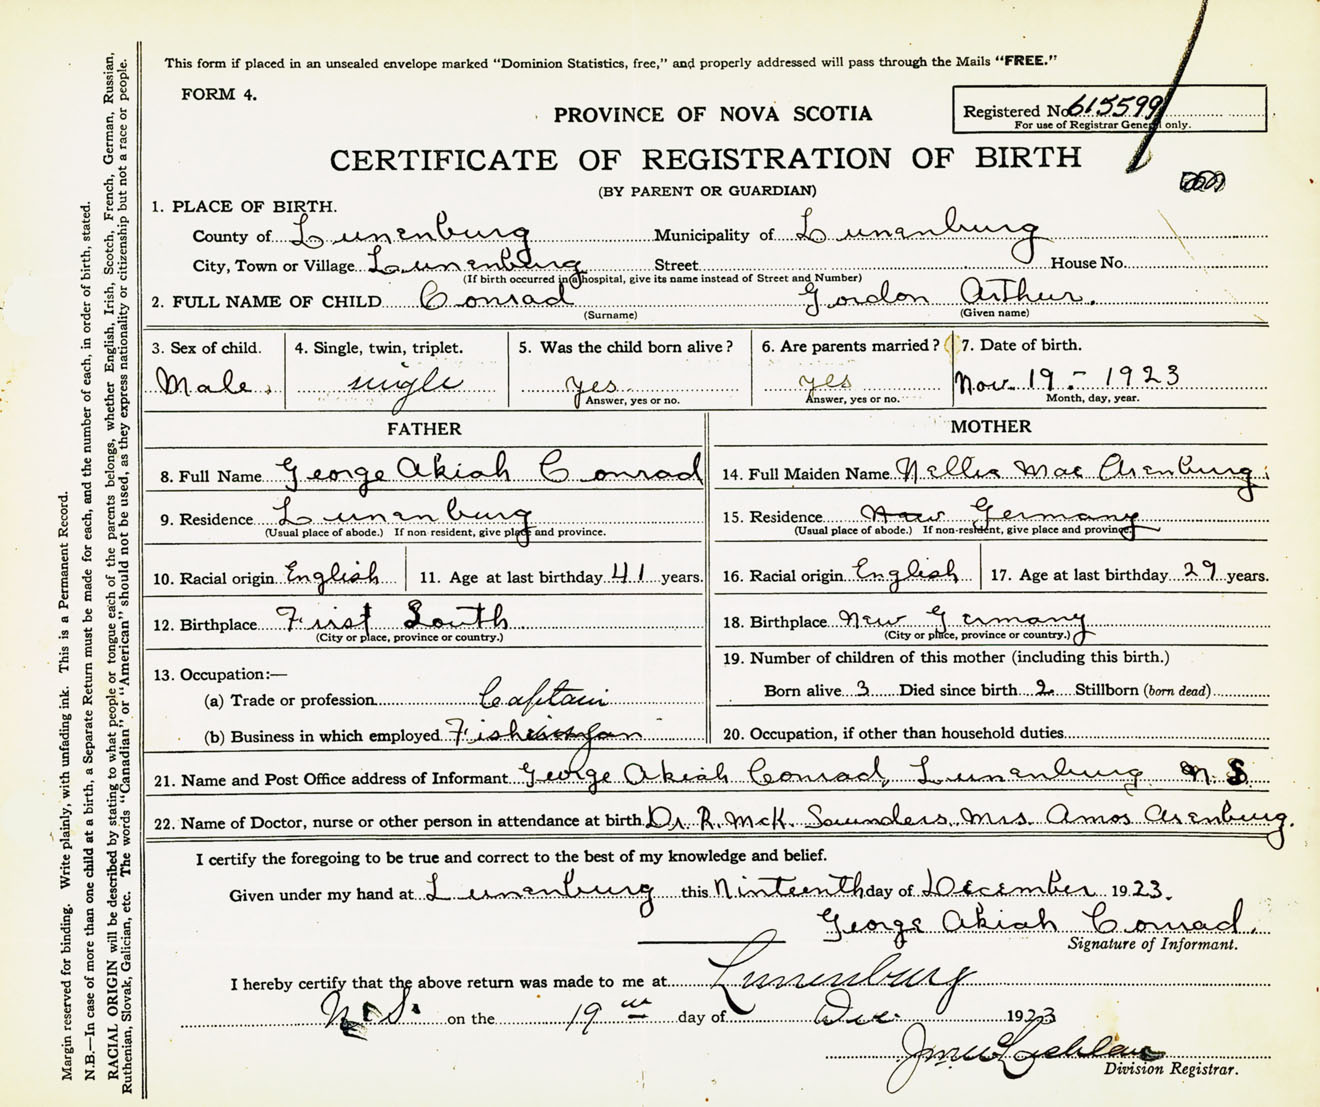 This form if placed in an unsealed envelope marked "Dominion Statistics, free," and properly addressed will pass through the Mails "FREE."
FORM 4.
PROVINCE OF NOVA SCOTIA
Registered No. 615599
For use of Registrar General only.
CERTIFICATE OF REGISTRATION OF BIRTH
(BY PARENT OR GUARDIAN)
1. PLACE OF BIRTH.
County of Lunenburg Municipality of Lunenburg
City, Town or Village Lunenburg Street House No.
(If birth occurred in a hospital, give its name instead of Street and Number)
2. FULL NAME OF CHILD Conrad Gordon Arthur.
(Surname) (Given name)
3. Sex of child. 4. Single, twin, triplet. 5. Was the child born alive? 6. Are parents married? 7. Date of birth.
Male. single yes yes Nov. 19 - 1923
Answer, yes or no. Answer, yes or no. Month, day, year.
FATHER MOTHER
8. Full Name George Akiah Conrad 14. Full Maiden Name Nellie Mae Arenburg
9. Residence Lunenburg 15. Residence New Germany
(Usual place of abode.) If non-resident, give place and province. (Usual place of abode.) If non-resident, give place and province.
10. Racial origin English 11. Age at last birthday 41 years. 16. Racial origin English 17. Age at last birthday 29 years.
12. Birthplace First South 18. Birthplace New Germany
(City or place, province or country.) (City or place, province or country.)
13. Occupation:— 19. Number of children of this mother (including this birth.)
(a) Trade or profession Captain Born alive 3 Died since birth 2 Stillborn (born dead)
(b) Business in which employed 20. Occupation, if other than household duties
21. Name and Post Office address of Informant George Akiah Conrad, Lunenburg N.S.
22. Name of Doctor, nurse or other person in attendance at birth. Dr. R. McK. Saunders. Mrs. Amos Arenburg.
I certify the foregoing to be true and correct to the best of my knowledge and belief.
Given under my hand at Lunenburg this Ninteenth day of December 1923.
George Akiah Conrad.
Signature of Informant.
I hereby certify that the above return was made to me at Lunenburg
N.S. on the 19th day of Dec. 1923
Division Registrar.
Margin reserved for binding. Write plainly, with unfading ink. This is a Permanent Record.
N.B.—In case of more than one child at a birth, a Separate Return must be made for each, and the number of each, in order of birth, stated.
RACIAL ORIGIN will be described by stating to what people or tongue each of the parents belongs, whether English, Irish, Scotch, French, German, Russian,
Ruthenian, Slovak, Galician, etc. The words "Canadian" or "American" should not be used, as they express nationality or citizenship but not a race or people.